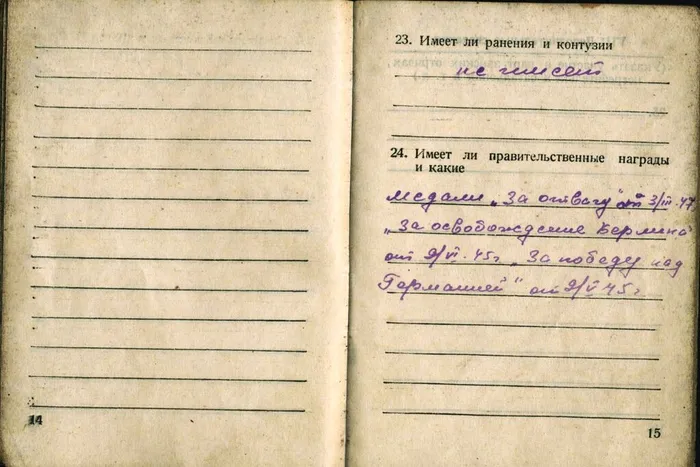 23. Имеет ли ранения и контузии
не имеет
24. Имеет ли правительственные награды
и какие
медали „За отвагу" от 3/III-47
„За освобождение Берлина"
от 9/VI-45г „За победу над
Германией" от 9/V 45г
14
15